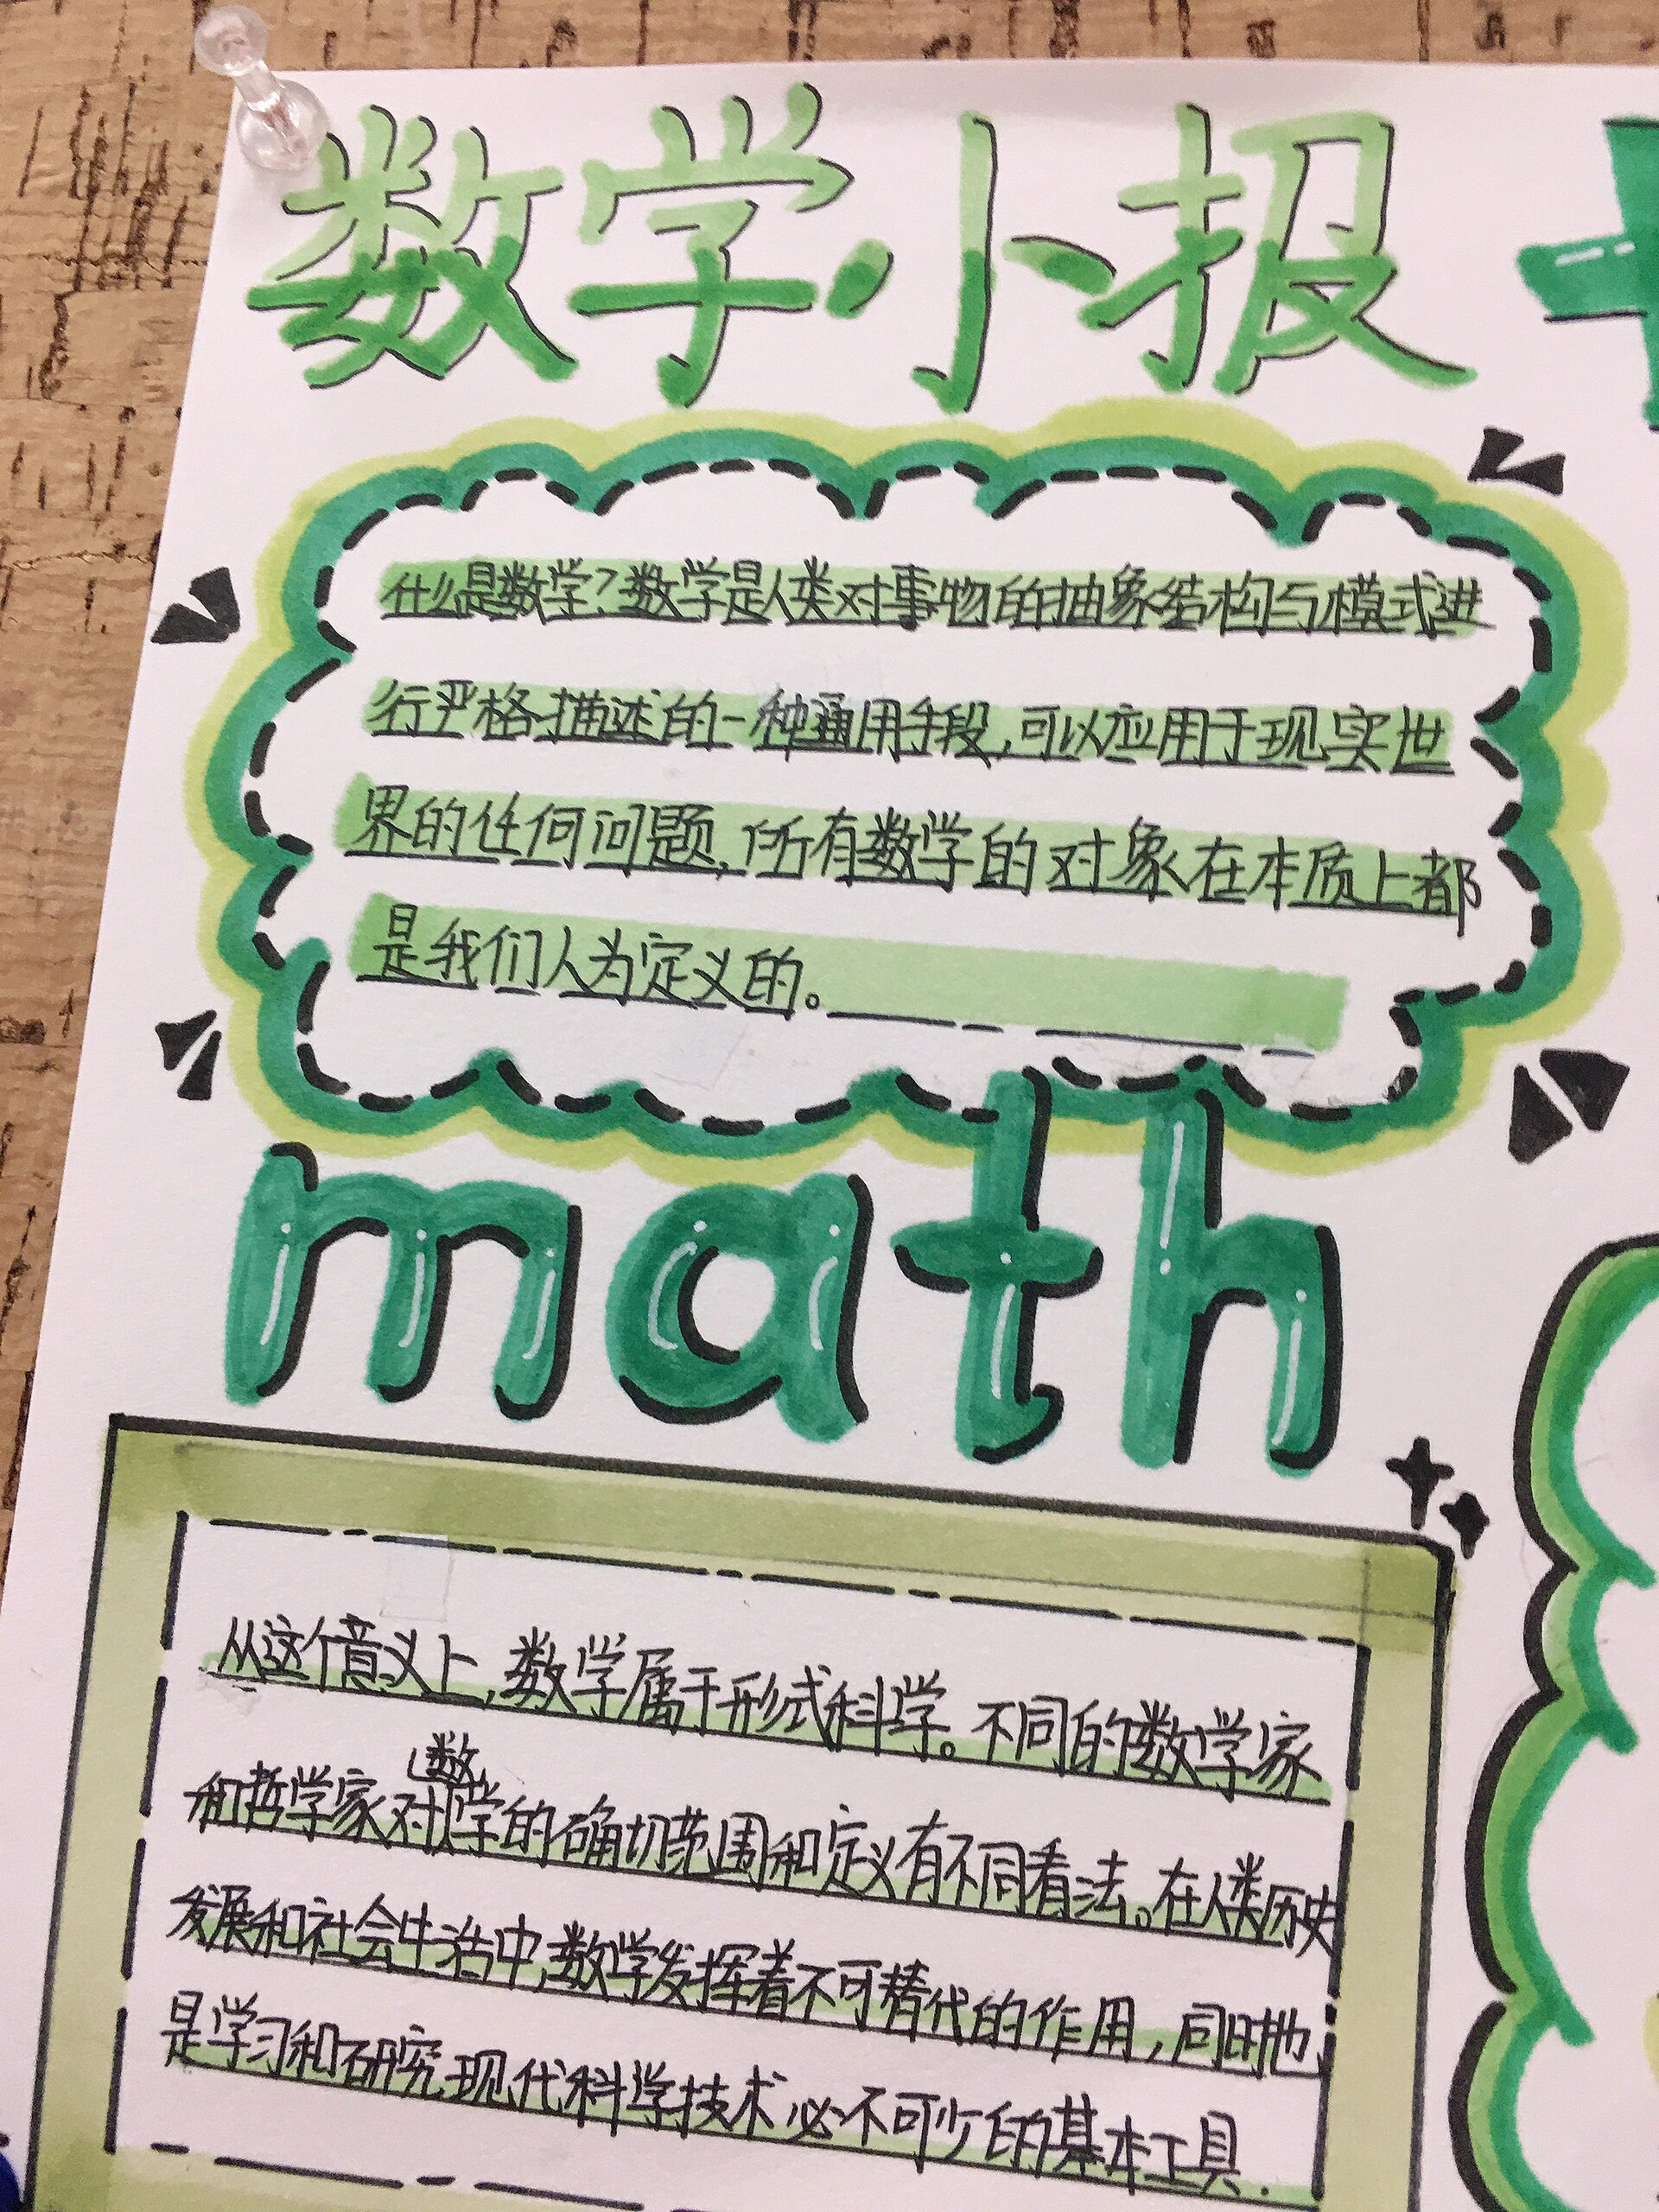 数学小报
什么是数学?数学是人类对事物的抽象结构与模式进
行严格描述的一种通用手段,可以应用于现实世
界的任何问题,所有数学的对象在本质上都
是我们人为定义的。
math
从这个意义上,数学属于形式科学。不同的数学家
和哲学家对数学的确切范围和定义有不同看法。在人类历史
发展和社会生活中,数学发挥着不可替代的作用,同时也
是学习和研究现代科学技术必不可少的基本工具.